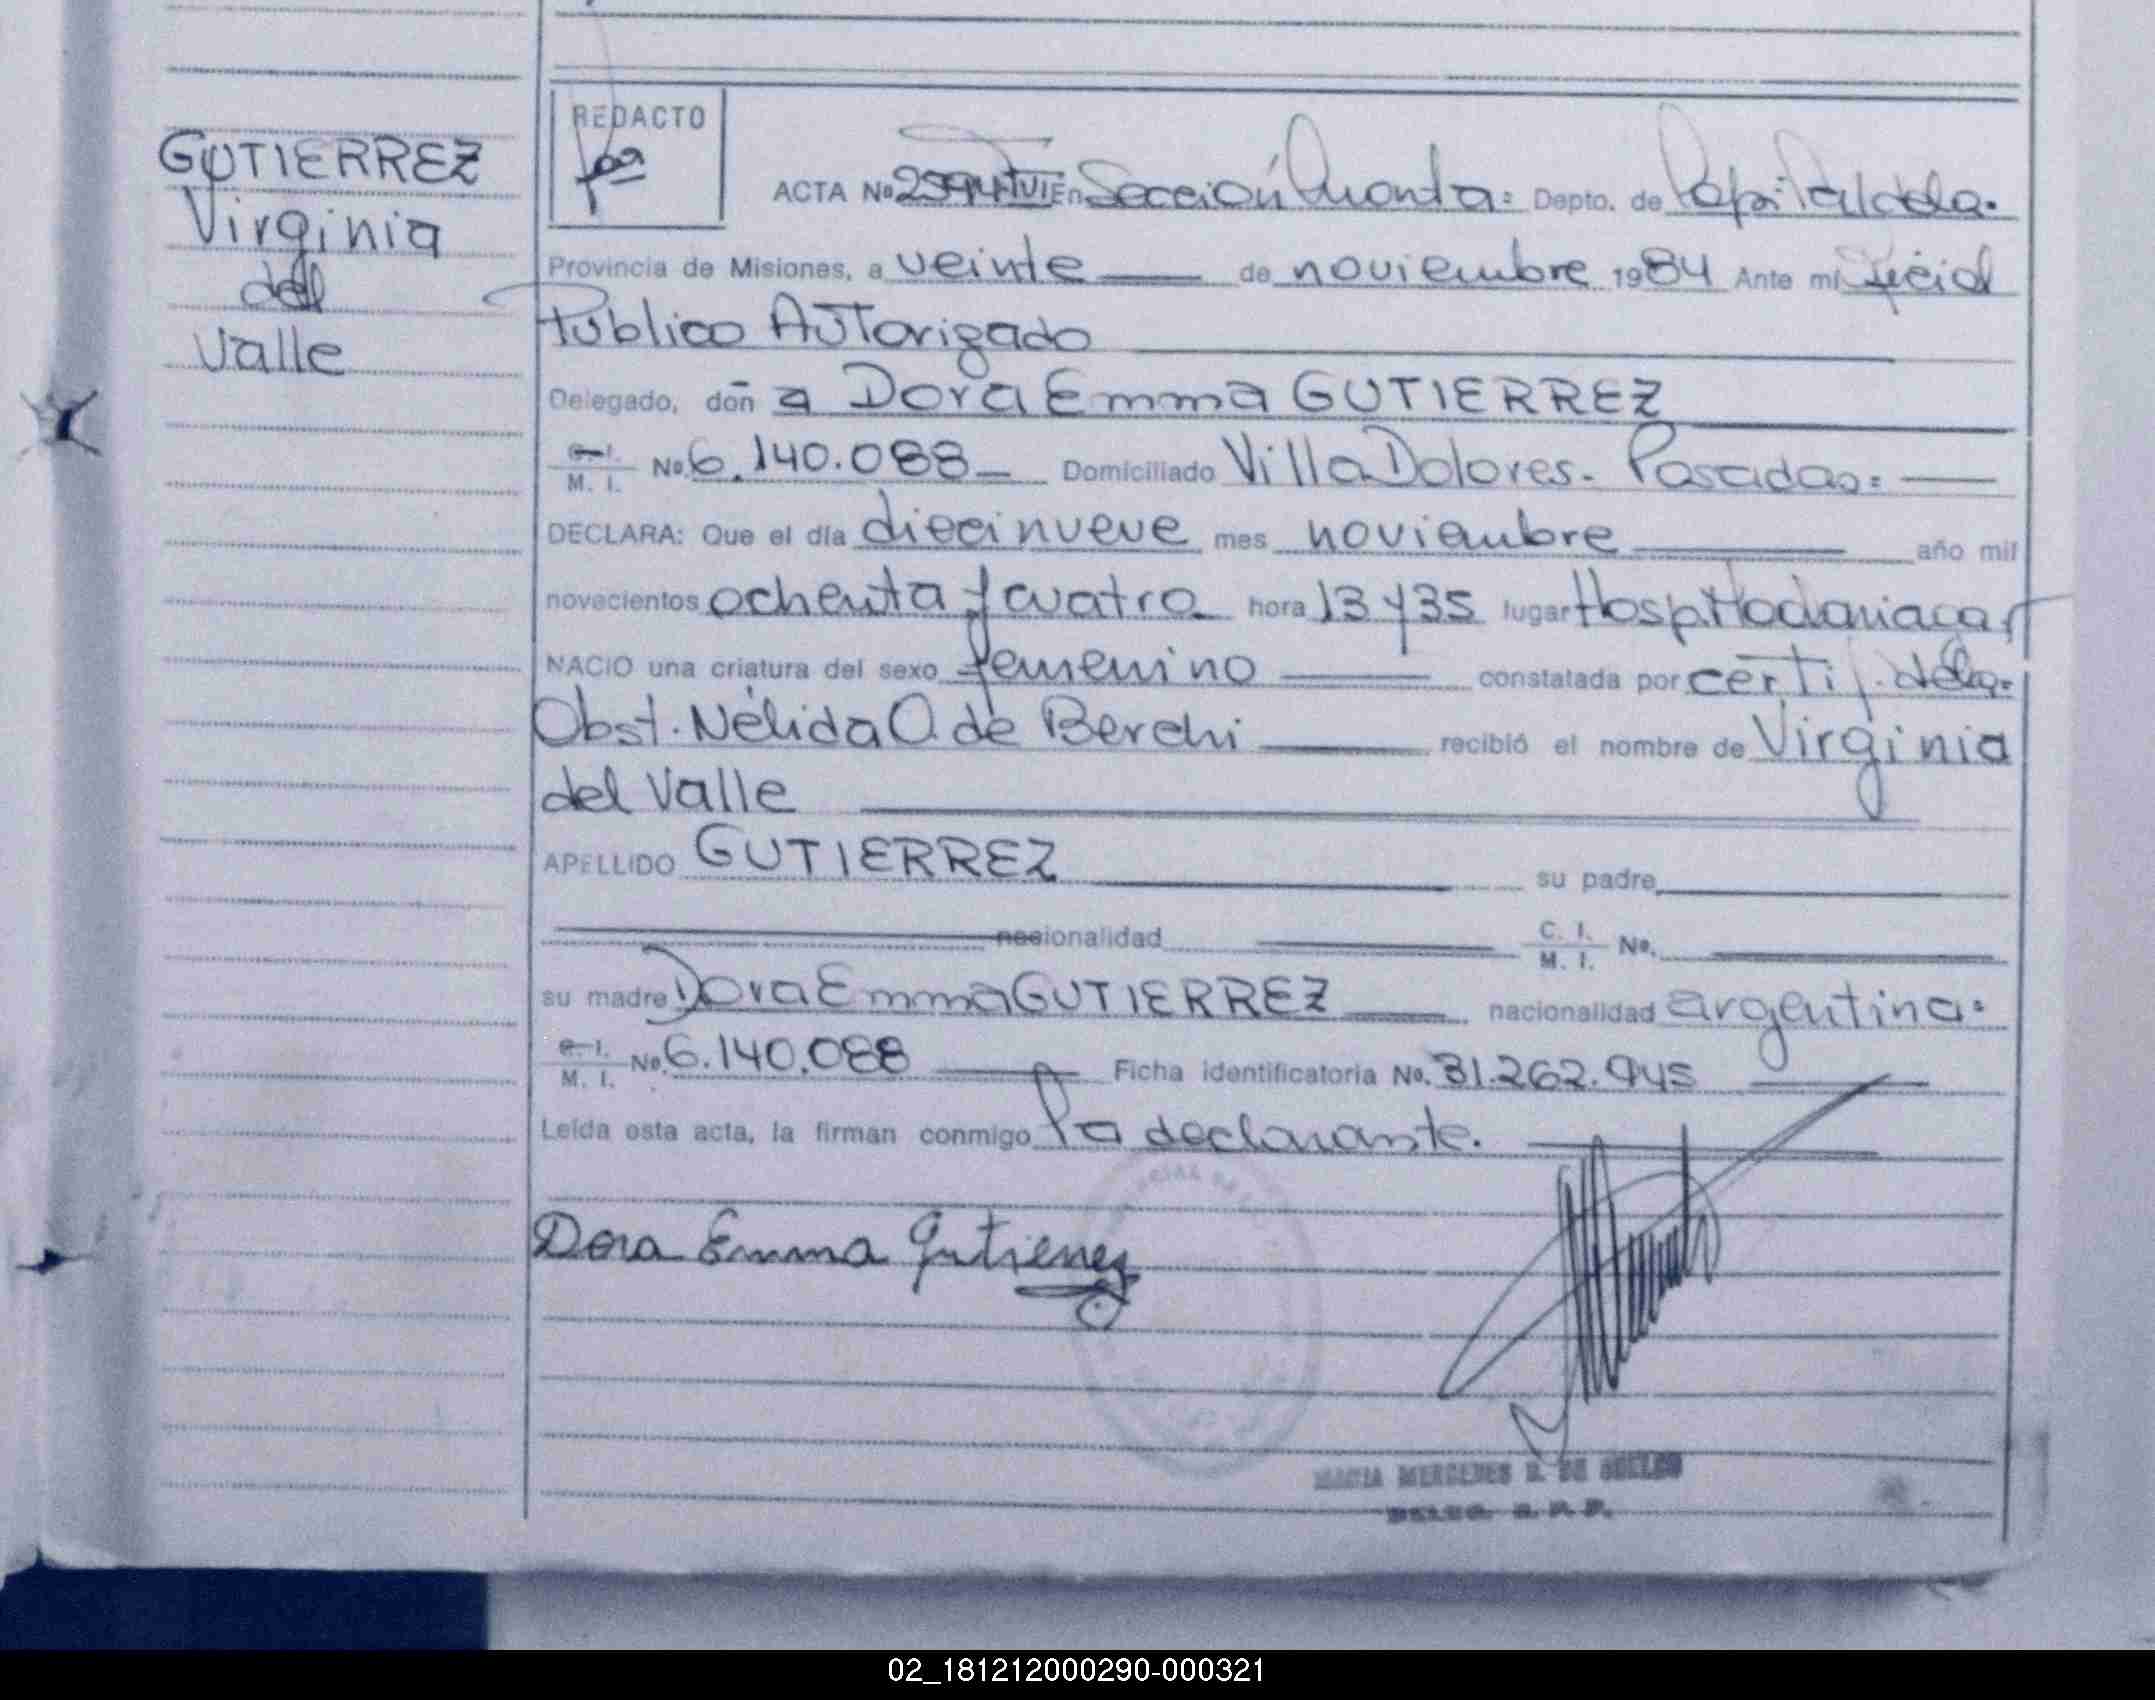 GUTIERREZ
Virginia
del
Valle
REDACTO
ACTA Nº 2594 T VI En Sección Cuarta= Depto. de Capital
Provincia de Misiones, a veinte de noviembre 1984 Ante mí Oficial
Público AuTorizado
Delegado, doñ a Dora Emma GUTIERREZ
C. I. M. I. Nº 6.140.088 Domiciliado Villa Dolores. Posadas=
DECLARA: Que el día diecinueve mes noviembre año mil
novecientos ochenta y cuatro hora 13 y 35 lugar Hosp. Madariaga
NACIO una criatura del sexo femenino constatada por certif. de la
Obst. Nélida O. de Berchi recibió el nombre de Virginia
del Valle
APELLIDO GUTIERREZ su padre
nacionalidad C. I. M. I. No.
su madre Dora Emma GUTIERREZ nacionalidad argentina=
C. I. M. I. Nº 6.140.088 Ficha identificatoria No. 31.262.945
Leída esta acta, la firman conmigo la declarante.
Dora Emma Gutierrez
MARIA MERCEDES
02_181212000290-000321